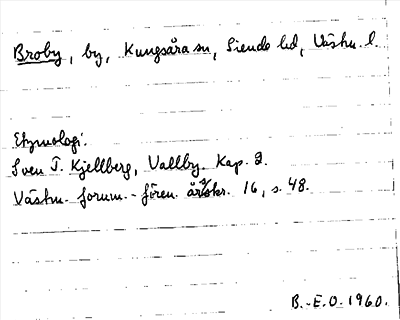 Broby, by, Kungsåra sn, Siende hd, Västm. l.
Etymologi.
Sven T. Kjellberg, Vallby. Kap. 2.
Västm. fornm.-fören. årsskr. 16, s. 48.
B.-E.O. 1960.